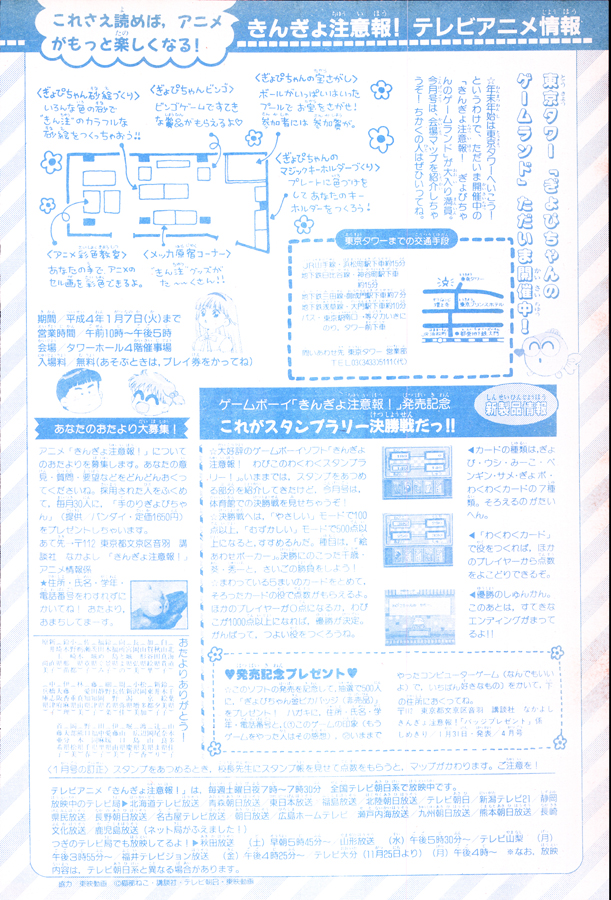 これさえ読めば，アニメ
がもっと楽しくなる！
きんぎょ注意報！ テレビアニメ情報
東京タワー「ぎょぴちゃんの
ゲームランド」ただいま開催中！
☆年末年始は東京タワーへいこう！
というわけで、ただいま開催中の
「きんぎょ注意報！ ぎょぴちゃ
んのゲームランド」が大入り満員。
今月号は、会場マップを紹介しちゃ
うぞ！ちかくの人はぜひいってね。
〈ぎょぴちゃん砂絵づくり〉
いろんな色の砂で
"きん注"のカラフルな
砂絵をつくっちゃおう!!
〈ぎょぴちゃんビンゴ〉
ビンゴゲームですてき
な賞品がもらえるよ♡
〈ぎょぴちゃんの宝さがし〉
ボールがいっぱいはいった
プールでお宝をさがせ！
参加者には参加賞が。
〈ぎょぴちゃんの
マジックキーホルダーづくり〉
プレートに色づけを
してあなたのキー
ホルダーをつくろう！
〈アニメ彩色教室〉
あなたの手で、アニメの
セル画を彩色できるよ。
〈メッカ原宿コーナー〉
"きん注"グッズが
た〜〜くさん!!
期間 平成4年1月7日(火)まで
営業時間 午前10時〜午後5時
会場 タワーホール4階催事場
入場料 無料(あそぶときは，プレイ券をかってね)
東京タワーまでの交通手段
JR山手線・浜松町駅下車約15分
地下鉄日比谷線・神谷町駅下車
約15分
地下鉄三田線・御成門駅下車約7分
地下鉄浅草線・大門駅下車約10分
のり，タワー前下車
問いあわせ先 東京タワー 営業部
TEL 03(3433)5111(代)
あなたのおたより大募集！
アニメ「きんぎょ注意報！」について
のおたよりを募集します。あなたの意
見・質問・要望などをどんどんおくっ
てくださいね。採用された人をふくめ
て，毎月30人に，「手のりぎょぴちゃ
ん」(提供／バンダイ・定価1650円)
をプレゼントしちゃいます。
あて先・〒112 東京都文京区音羽 講
談社 なかよし「きんぎょ注意報！」
アニメ情報係
★住所・氏名・学年・
電話番号をわすれずに
かいてね！ おたより，
おまちしてまーす。
おたよりありがとう！
ゲームボーイ「きんぎょ注意報！」発売記念
これがスタンプラリー決勝戦だっ!!
新製品情報
☆大好評のゲームボーイソフト「きんぎょ
注意報！ わぴこのわくわくスタンプラ
リー！」。いままでは，スタンプをあつめ
る部分を紹介してきたけど，今月号は，
体育館での決勝戦を見せちゃうぞ！
☆決勝戦へは，「やさしい」モードで100
点以上，「むずかしい」モードで500点以
上になると，すすめるんだ。種目は，「絵
あわせポーカー」。決勝にのこった千歳・
葵・秀一と，さいごの勝負をしよう！
☆まわっている5まいのカードをとめて，
そろったカードの役で点数がもらえるよ。
ほかのプレイヤーが0点になるか，わぴ
こが1000点以上になれば，優勝が決定。
がんばって，つよい役をつくろうね。
◀カードの種類は，ぎょ
ぴ・ウシ・みーこ・ペ
ンギン・サメ・ぎょポ・
わくわくカードの7種
類。そろえるのがたい
へん。
◀「わくわくカード」
で役をつくれば，ほか
のプレイヤーから点数
をよこどりできるぞ。
◀優勝のしゅんかん。
このあとは，すてきな
エンディングがまって
るよ!!
♥発売記念プレゼント♥
☆このソフトの発売を記念して，抽選で500人
に，「ぎょぴちゃん銀ピカバッジ(非売品)」
をプレゼント！ ハガキに，住所・氏名・学
年・電話番号と，(1)このゲームの感想(もう
ゲームをやった人はその感想)，(2)いままで
やったコンピューターゲーム(なんでもいい
よ)で，いちばん好きなもの)をかいて，下
の住所におくってね。
〒112 東京都文京区音羽 講談社 なかよし
「きんぎょ注意報！『バッジプレゼント』係
しめきり／1月31日・発表／4月号
〈1月号の訂正〉スタンプをあつめるとき，校長先生にスタンプ帳を見せて点数をもらうと，マップがかわります。ご注意を！
テレビアニメ「きんぎょ注意報！」は，毎週土曜日夜7時〜7時30分 全国テレビ朝日系で放映中です。
放映中のテレビ局▶北海道テレビ放送 青森朝日放送 東日本放送 福島放送 北陸朝日放送 テレビ朝日 新潟テレビ21 静岡
県民放送 長野朝日放送 名古屋テレビ放送 朝日放送 広島ホームテレビ 瀬戸内海放送 九州朝日放送 熊本朝日放送 長崎
文化放送 鹿児島放送(ネット局がふえました！)
つぎのテレビ局でも放映してるよ！▶秋田放送 (土)早朝5時45分〜 山形放送 (水)午後5時30分〜 テレビ山梨 (月)
午後3時55分〜 福井テレビジョン放送 (金)午後4時25分〜 テレビ大分(11月25日より) (月)午後4時〜 ※なお，放映
内容は，テレビ朝日系と異なる場合があります。
協力／東映動画 ©猫部ねこ・講談社・テレビ朝日・東映動画